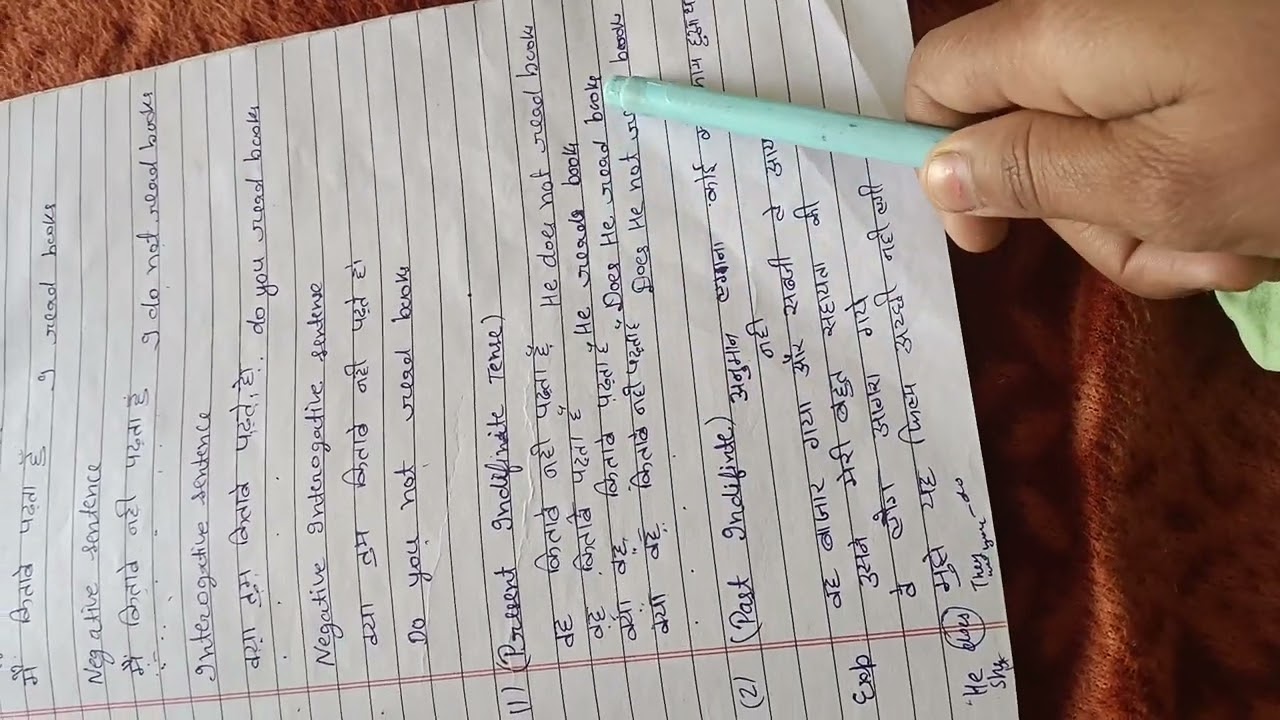 मैं किताबे पढ़ता हूँ I read books
Negative sentence
मैं किताबे नही पढता हूँ I do not read books
Interogative sentence
क्या तुम किताबे पढ़ते हो. do you read books
Negative Interogative sentence
क्या तुम किताबे नही पढ़ते हो
Do you not read book
(1) (Present Indifinite Tense)
वह किताबे नही पढ़ता हैं He does not read book
वह किताबे पढता है He reads book
क्या वह किताबे पढता है Does He read books
क्या वह किताबे नही पढता है Does He not book
(2) (Past Indifinte) अनुमान लगाना कोई
नही
वह बाजार गया और सब्जी ले आया
Exp उसने मेरी बहुत सहायता की
वे लोग आगरा गये
मुझे यह फिल्म अच्छी नही लगी
He does They
She you - do
we